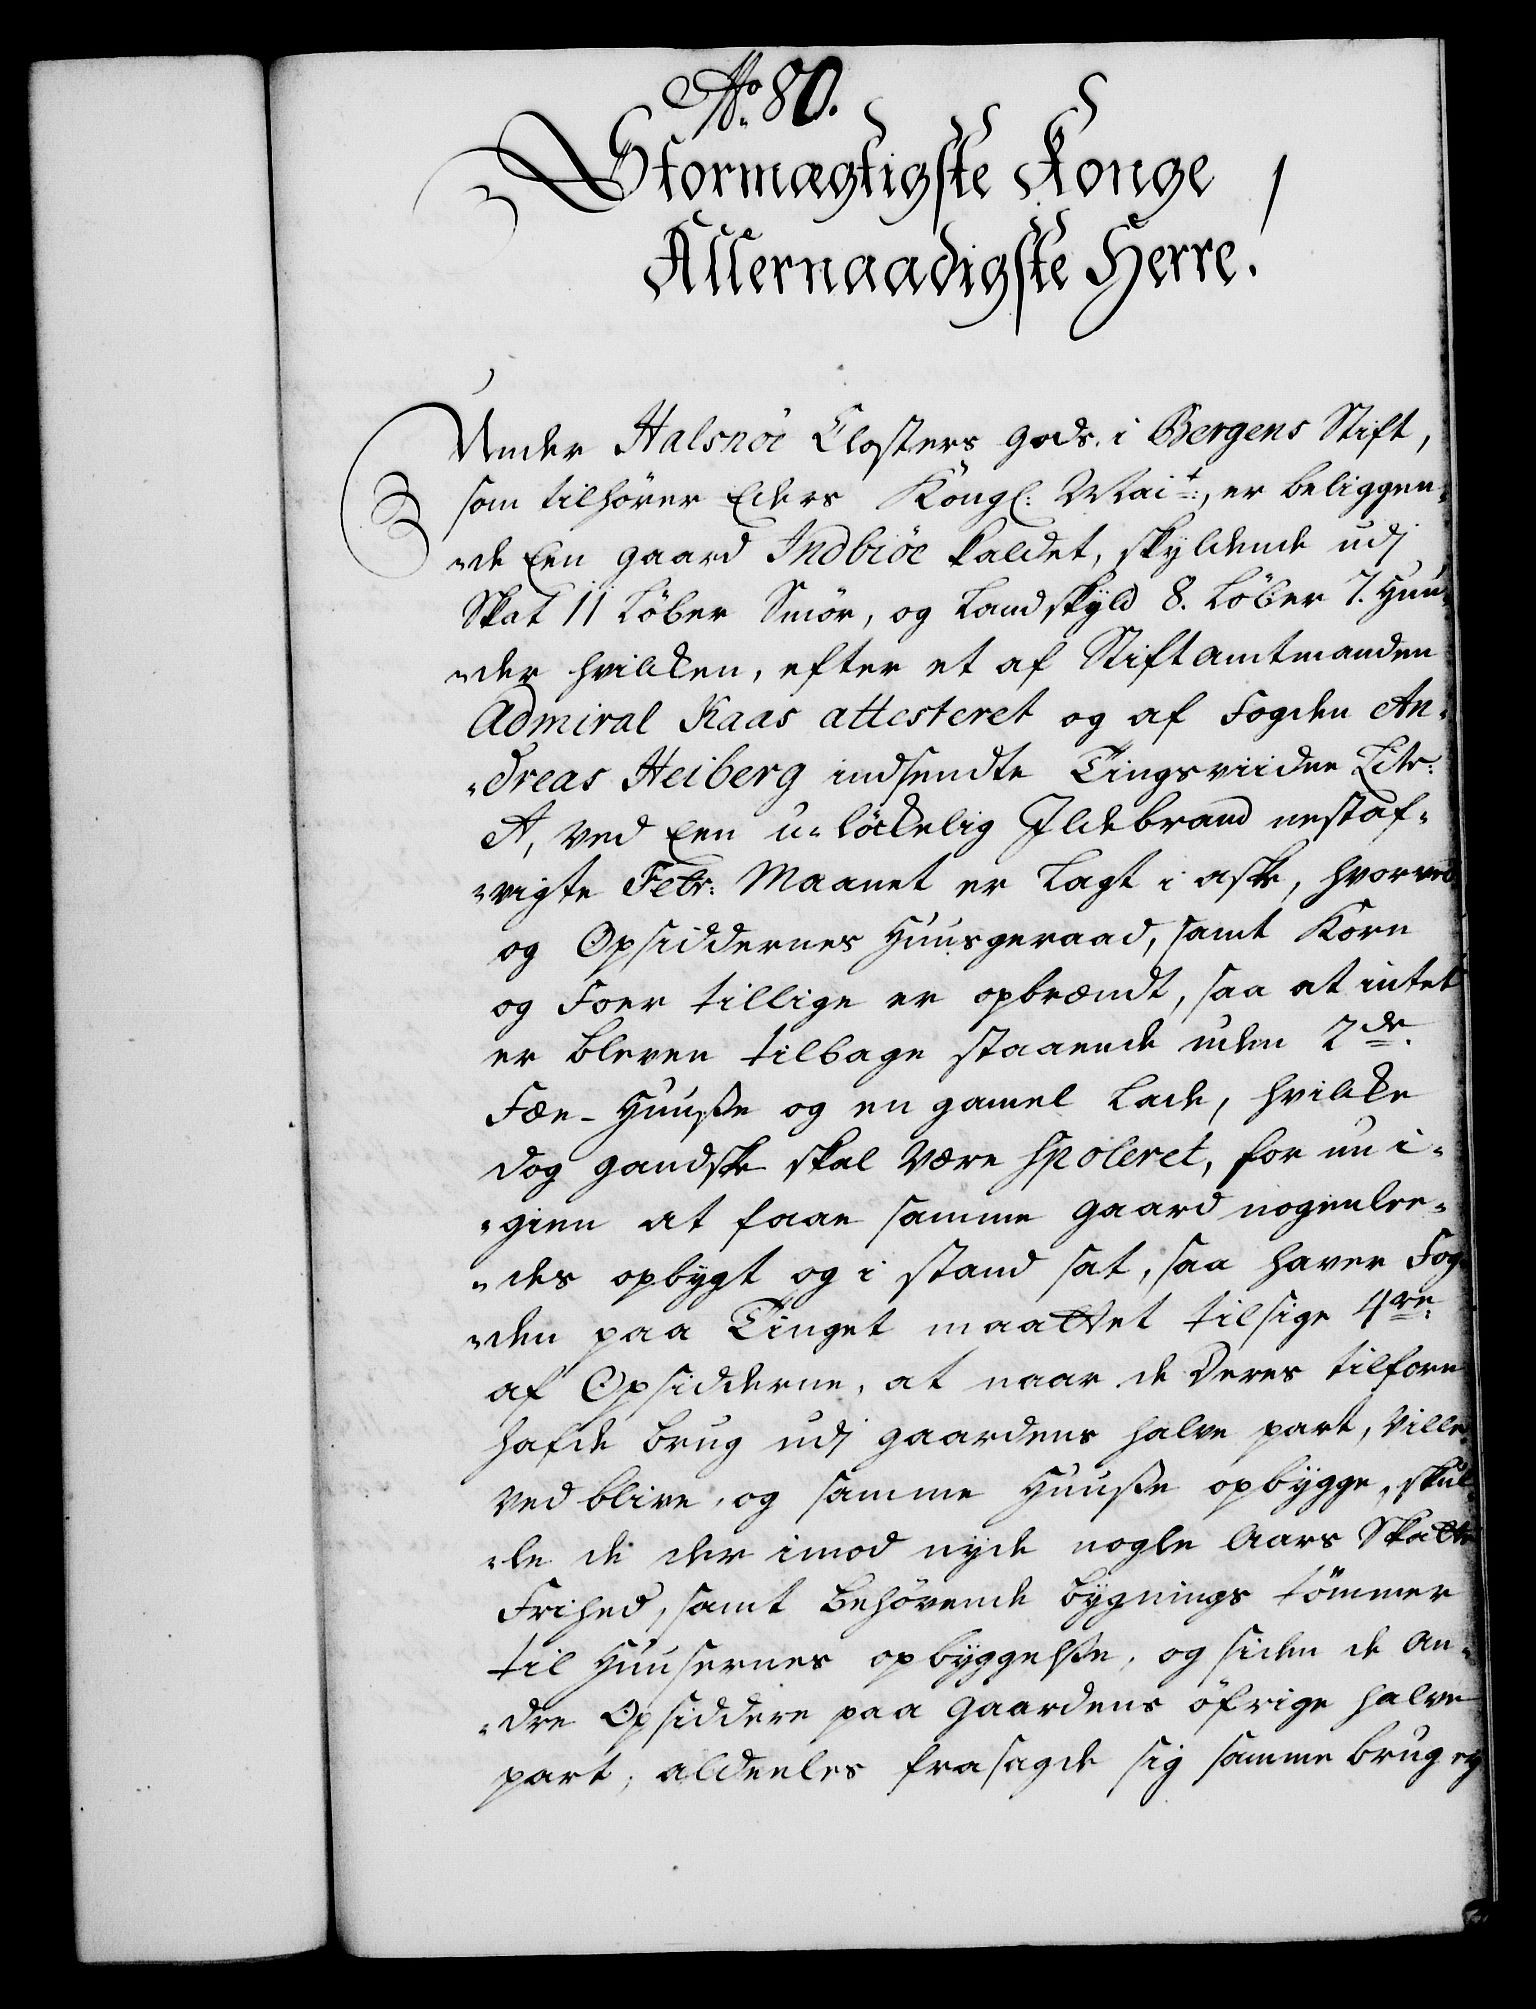 No. 80.
Stormægtigste Konge
Allernaadigste Herre.
Under Halsnöe Closters Gods i Bergens Stift,
som tilhörer Eders Köngl: Mait:, er beliggen-
-de Een gaard Indbiöe kaldet, skyldende udj
Skat 11 Löber Smör, og Landskÿld 8. Löber 7. Hun-
-der hvilken, efter et af Stiftamtmanden
Admiral Kaas attesteret og af Fogden An-
-dreas Heiberg indsendte Tingsviidne Litr:
A, ved Een u-löckelig Ildebrand nestaf-
-vigte Febr: Maanet er Lagt i aske, hvorved
og Opsiddernes Huusgeraad, samt Korn
og Foer tillige er opbrændt, saa at intet
er bleven tilbage staaende uden 2de.
Fæe-Huuße og en gamel Lade, hvilke
dog gandske skal være spoleret, for nu i-
-gien at faae samme gaard nogenlee-
-des opbygt og i stand sat, saa haver Fog-
-den paa Tinget maattet tilsige 4re
af Opsidderne, at naar de deres tilforn
hafde brug udj gaardens halve part, Ville
ved blive, og samme Huuße opbÿgge, skul-
-le de der imod nyde nogle Aars Skatte
Frihed, samt behörende bÿgnings tömmer
til Huusernes opbÿggelße, og siden de An-
-dre Opsiddere paa Gaardens öfrige halve
part, aldeeles frasagde sig samme brug og